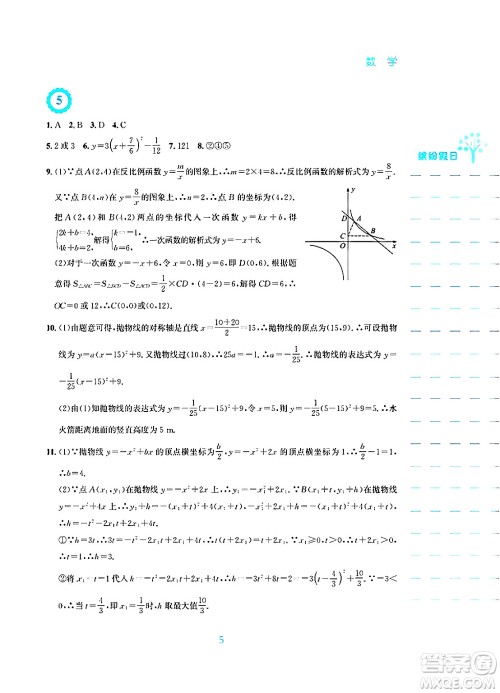 数 学
5
缤纷假日
1. A 2. B 3. D 4. C
5. 2或3 6. y=3(x+7/6)²-1/12 7. 121 8. ②④⑤
9. (1)∵点A(2,4)在反比例函数y=m/x的图象上,∴m=2×4=8,∴反比例函数的解析式为y=8/x.
又∵点B(4,n)在y=8/x的图象上,∴n=2,∴点B的坐标为(4,2).
把A(2,4)和B(4,2)两点的坐标代入一次函数y=kx+b,得
{2k+b=4, 4k+b=2,解得{k=-1, b=6,∴一次函数的解析式为y=-x+6.
(2)对于一次函数y=-x+6,令x=0,则y=6,即D(0,6).根据题
意得S△ABC=S△BCD-S△ACD=1/2×CD·(4-2)=6,∴CD=6,∴
OC=0或12,∴C(0,0)或(0,12).
y D A C B O x
10. (1)由题意可得,抛物线的对称轴是直线x=(10+20)/2=15,∴抛物线的顶点为(15,9),∴设抛物
线为y=a(x-15)²+9.又抛物线过(10,8),∴25a+9=8,∴a=-1/25,∴抛物线的表达式
为y=-1/25(x-15)²+9.
(2)由(1)知抛物线的表达式为y=-1/25(x-15)²+9,令x=5,则y=-1/25(5-15)²+9=5,∴水
火箭距离地面的竖直高度为5 m.
11. (1)∵抛物线y=-x²+bx的顶点横坐标为b/2,y=-x²+2x的顶点横坐标为1,∴b/2-1=1,
∴b=4.
(2)∵点A(x₁,y₁)在抛物线y=-x²+2x上,∴y₁=-x₁²+2x₁.∵B(x₁+t,y₁+h)在抛物线
y=-x²+4x上,∴y₁+h=-(x₁+t)²+4(x₁+t),∴-x₁²+2x₁+h=-(x₁+t)²+4(x₁+t),
∴h=-t²-2x₁t+2x₁+4t.
①∵h=3t,∴3t=-t²-2x₁t+2x₁+4t,∴t(t+2x₁)=t+2x₁.∵x₁≥0,t>0,∴t+2x₁>
0,∴t=1,∴h=3.
②将x₁=t-1代入h=-t²-2x₁t+2x₁+4t,∴h=-3t²+8t-2=-3(t-4/3)²+10/3.∵-3<
0,∴当t=4/3,即x₁=1/3时,h取最大值10/3.
5